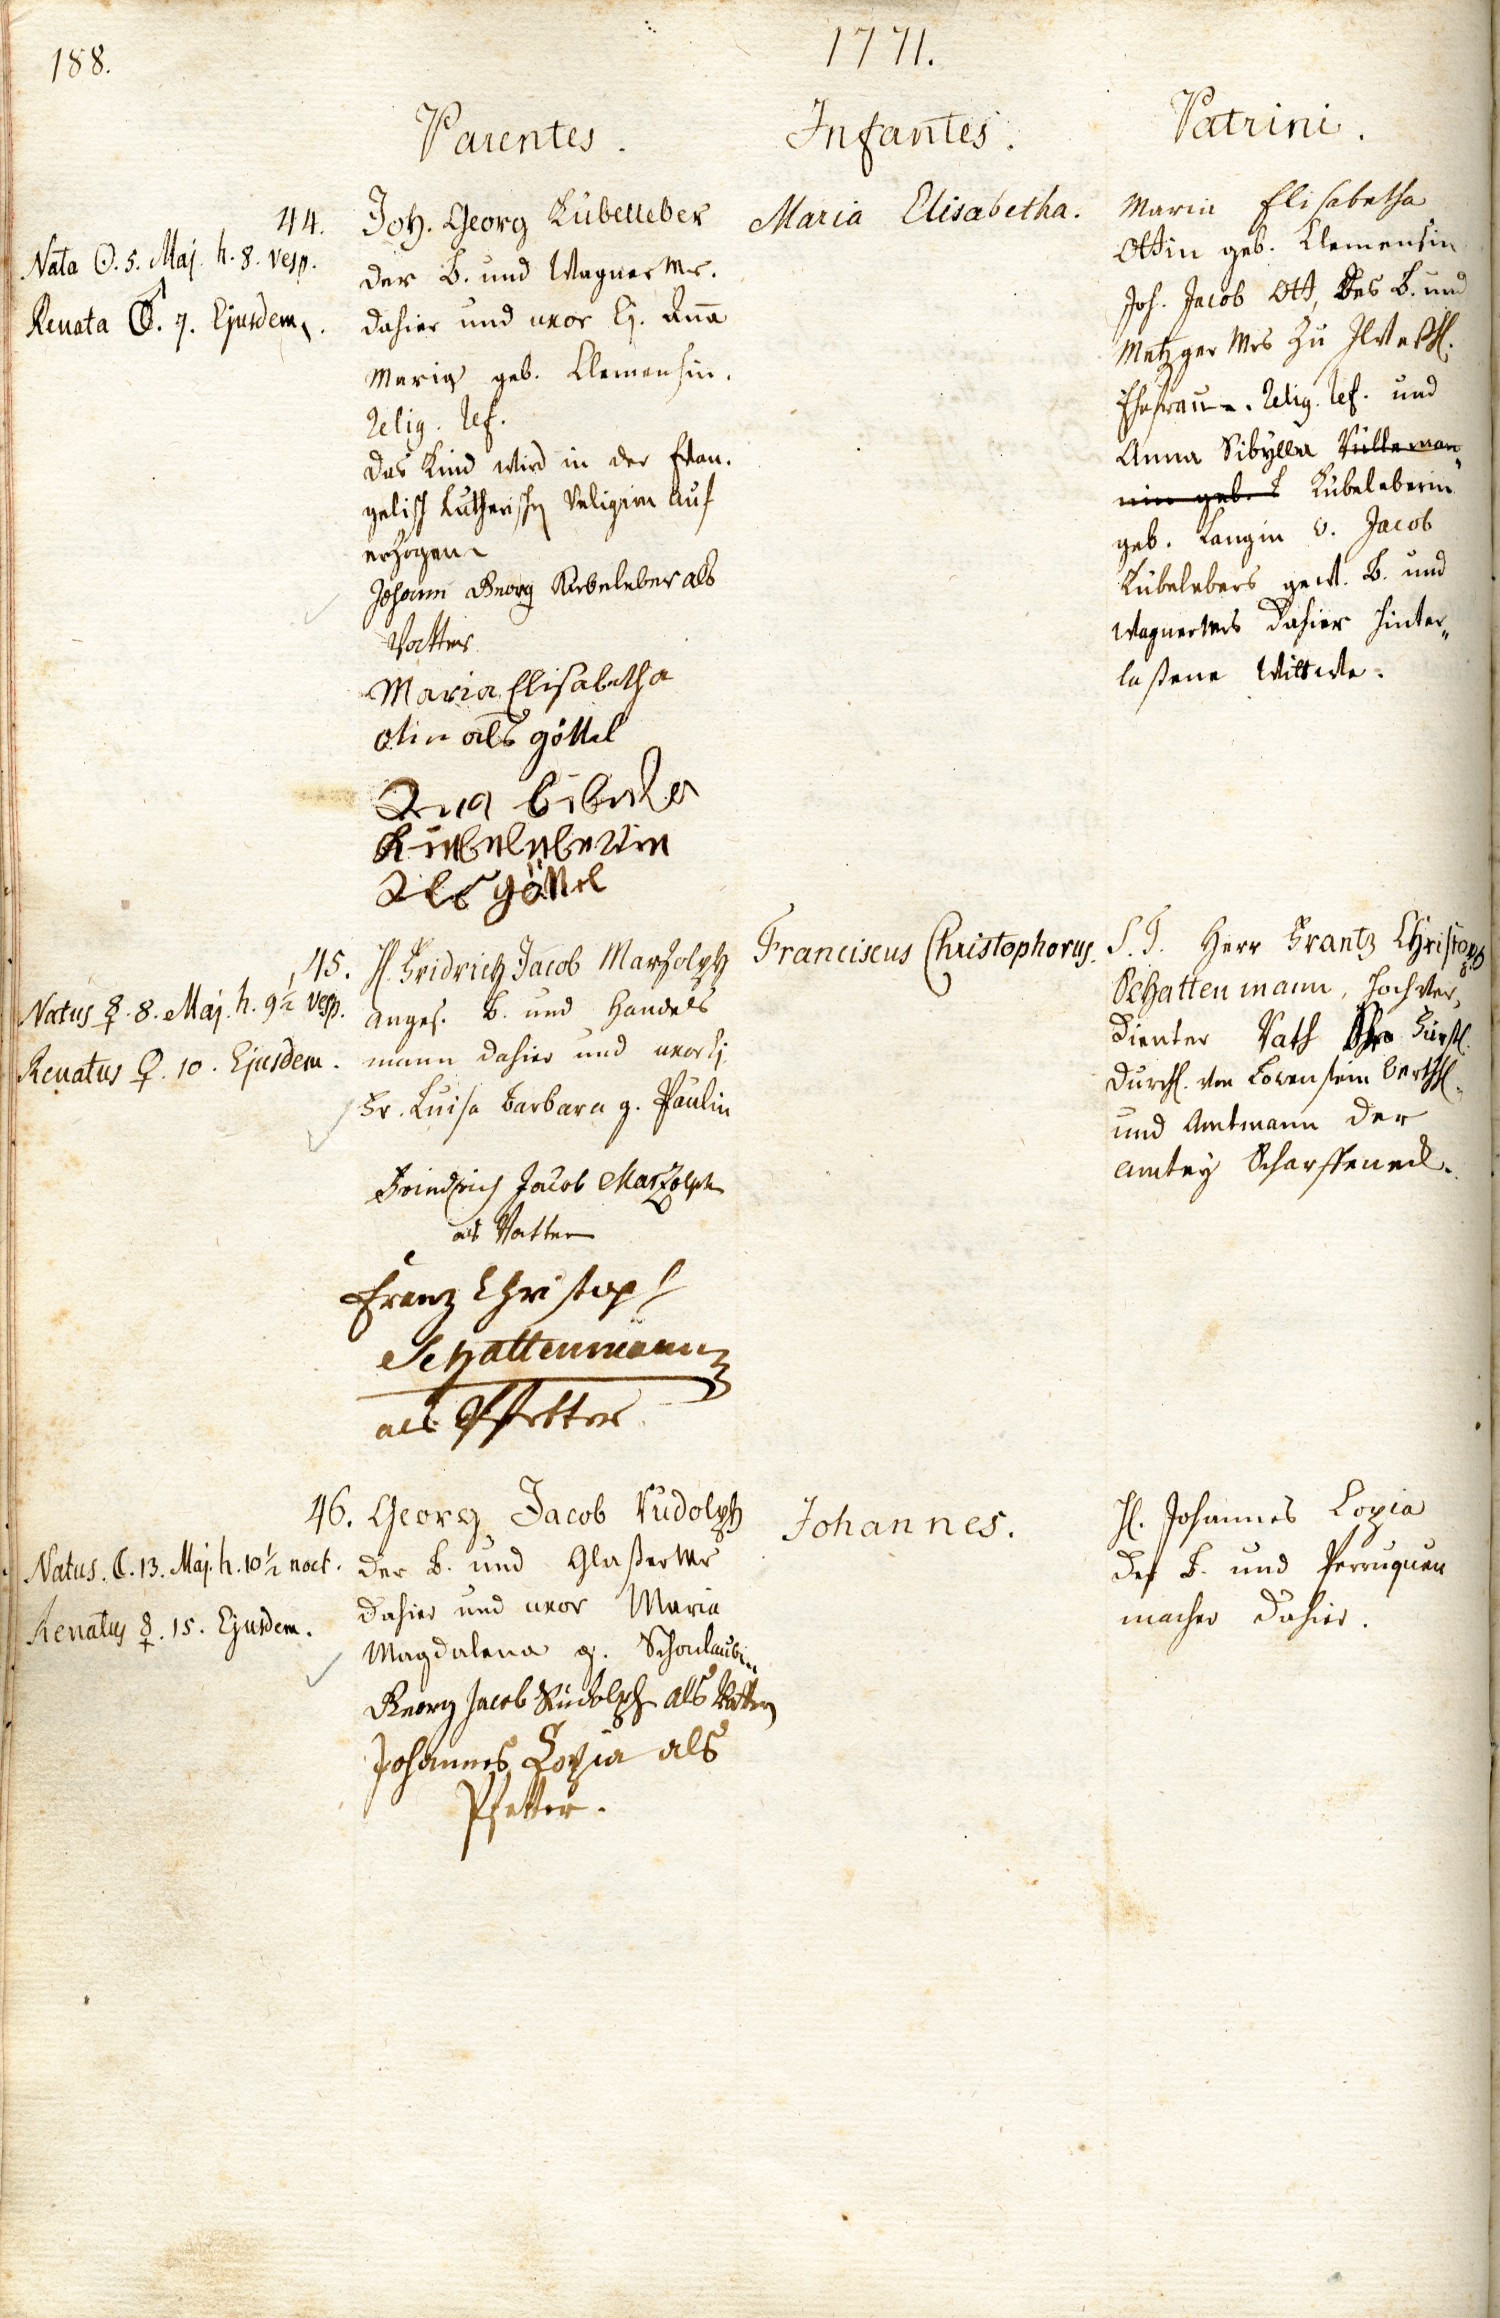 188.
1771.
Parentes.
Infantes.
Patrini.
44.
Nata ☉. 5. Maj. h. 8. vesp.
Renata ♂. 7. Ejusdem.
Joh. Georg Kübelleber
der B. und Wagner Mr.
dahier und uxor Ej. Anna
Maria geb. Clemensin.
Relig. ref.
das Kind wird in der Evan.
gelisch Lutherischen Religion auf
erzogen
Johann Georg Kübeleber als
Vatter
Maria Elisabetha
otin als göttel
Ana Sibila
Kübeleberin
Als göttel
Maria Elisabetha.
Maria Elisabetha
Ottin geb. Clemensin
Joh. Jacob Ott, des B. und
Metzger Mrs zu
Ehefrau. Relig. ref. und
Anna Sibylla
Kübeleberin
geb. Langin v. Jacob
Kübelebers gew. B. und
Wagner Mrs dahier hinter„
laßene Wittwe.
45.
Natus ☿. 8. Maj. h. 9½ vesp.
Renatus ♀. 10. Ejusdem.
H. Fridrich Jacob Marzolph
anges. B. und Handels
mann dahier und uxor Ej.
Fr. Luisa Barbara g. Paulin
Friedrich Jacob Marzolph
als Vatter
Franz Christoph
Schattenmann
als Pfetter
Franciscus Christophorus.
S. T. Herr Frantz Christoph
Schattenmann, Hochver„
dienter Rath Ihro Fürstl.
Durchl. von Löwenstein Werthh.
und Amtmann der
Amtey Scharffeneck.
46.
Natus. ☾. 13. Maj. h. 10½ noct.
Renatus ☿. 15. Ejusdem.
Georg Jacob Rudolph
der B. und Glaßer Mr
dahier und uxor Maria
Magdalena g. Schonlaubin
Georg Jacob Rudolph als Vatter
Johannes Loxia als
Pfetter.
Johannes.
H. Johannes Loxia
der B. und Perruquen
macher dahier.